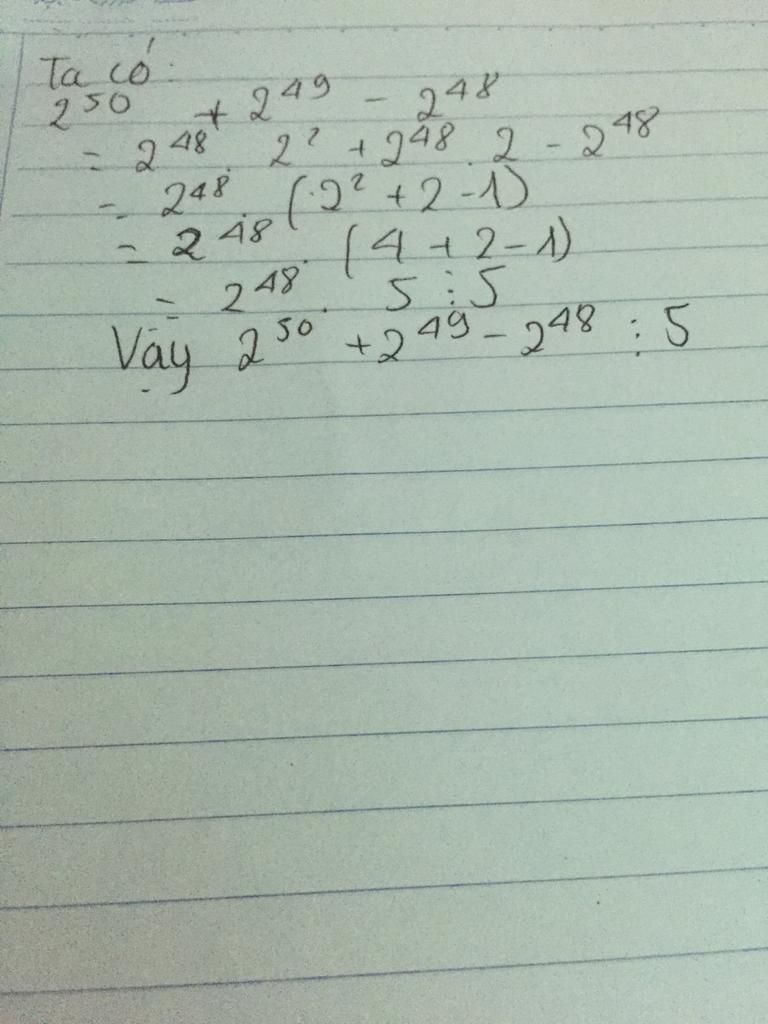 Ta có:
2⁵⁰ + 2⁴⁹ - 2⁴⁸
= 2⁴⁸. 2² + 2⁴⁸. 2 - 2⁴⁸
= 2⁴⁸. (2² + 2 - 1)
= 2⁴⁸. (4 + 2 - 1)
= 2⁴⁸. 5 ⋮ 5
Vậy 2⁵⁰ + 2⁴⁹ - 2⁴⁸ ⋮ 5